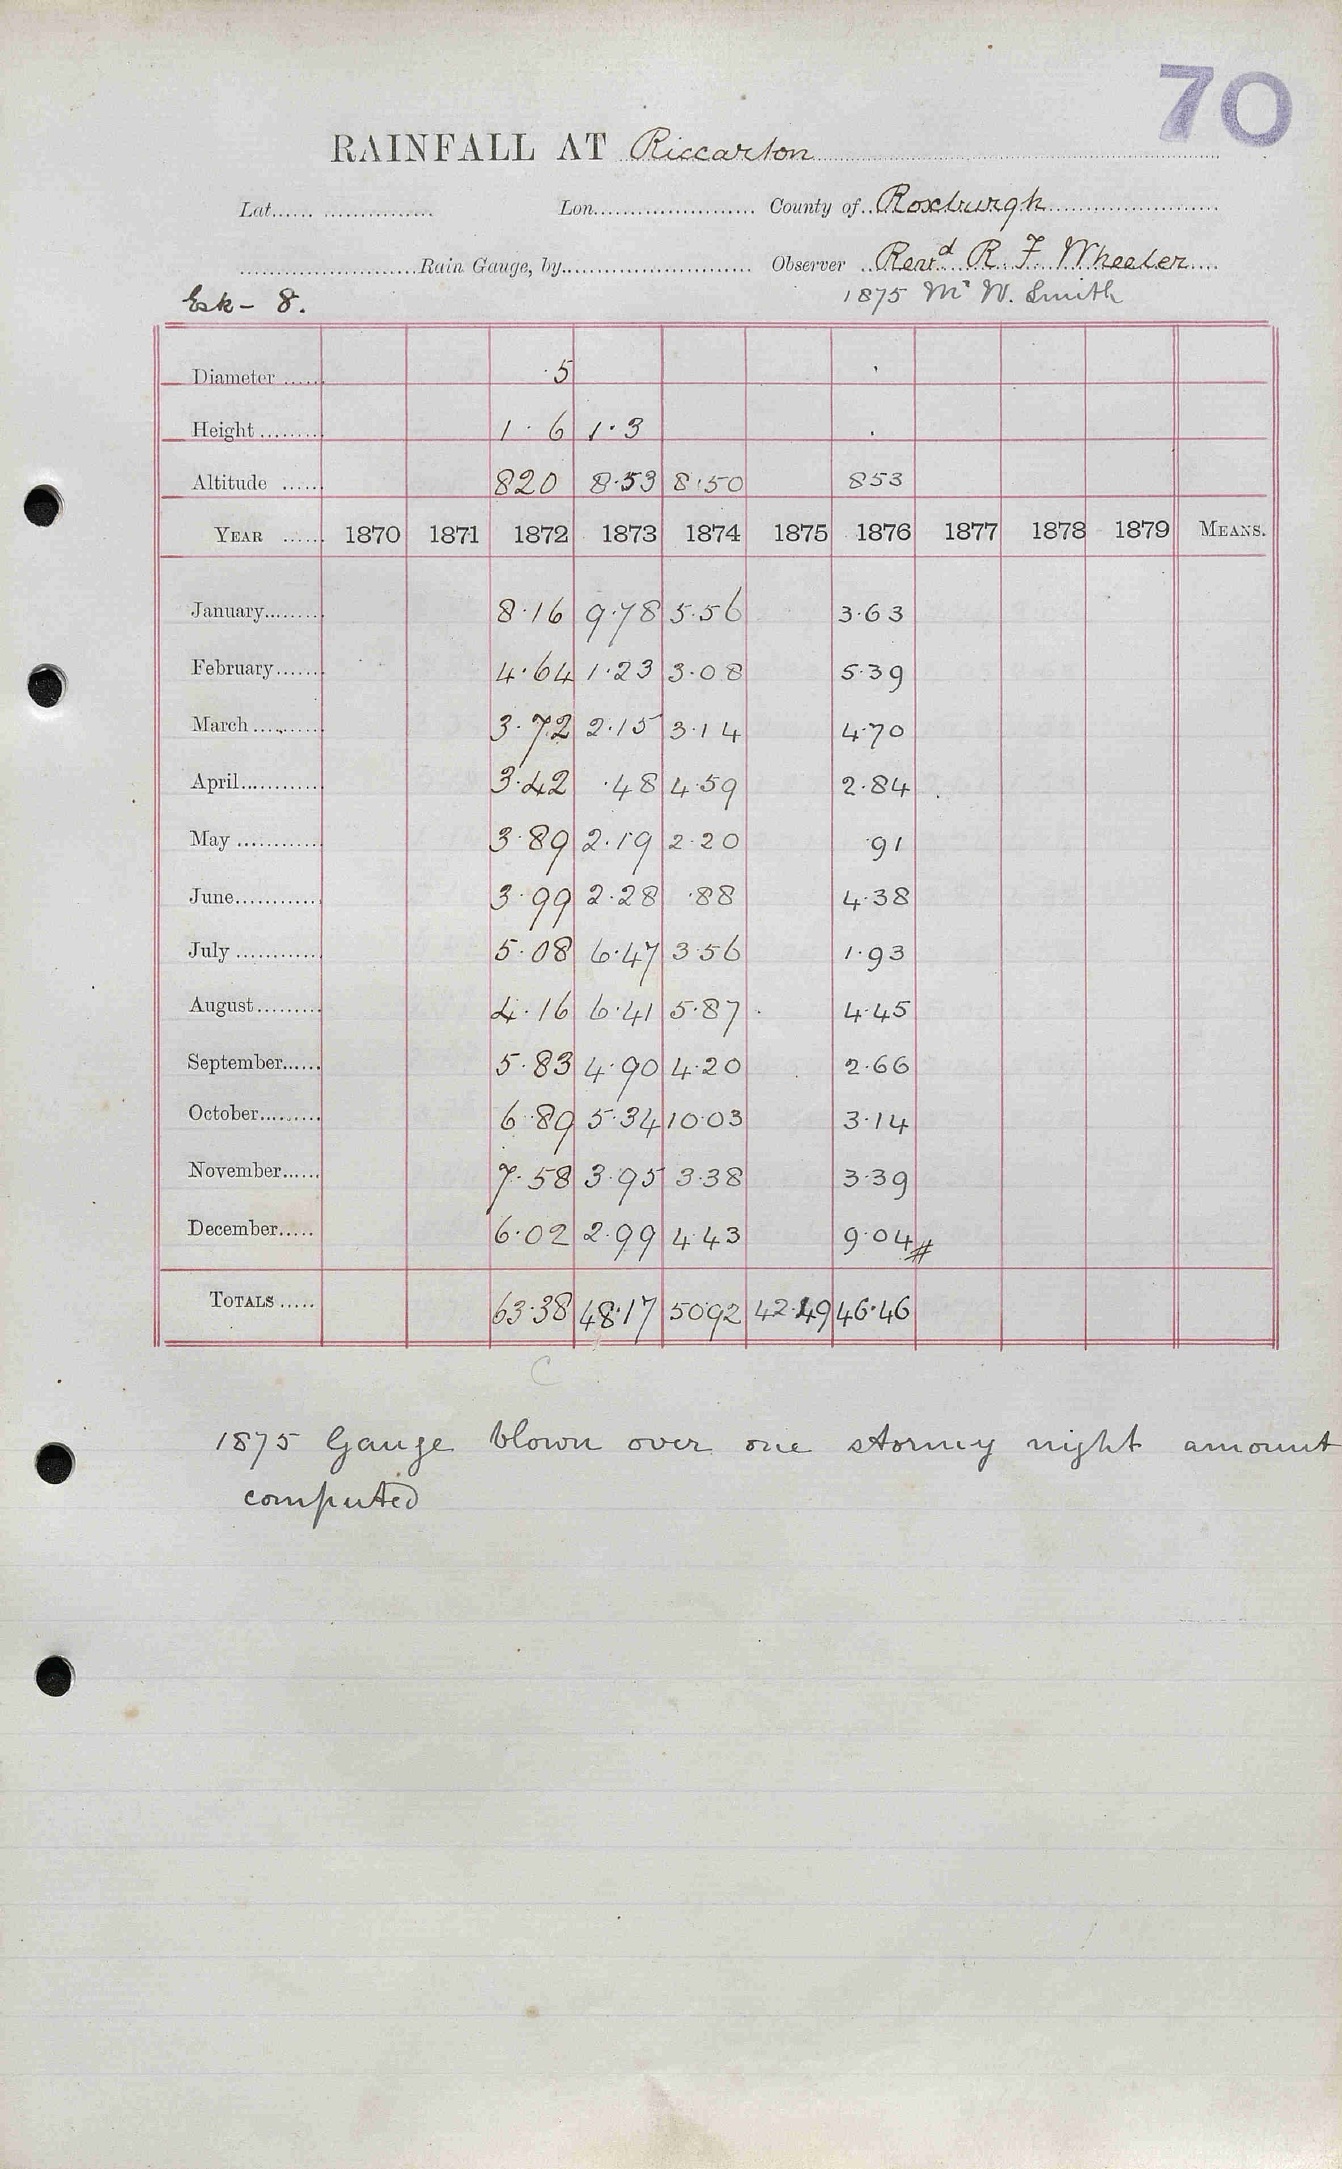 70
RAINFALL AT Riccarton
Lat...... ................ Lon....................... County of.. Roxburgh
........................Rain Gauge, by.......................... Observer .. Revd R. F. Wheeler
Esk - 8. 1875 Mr W. Smith
Diameter ...... 5
Height ......... 1 · 6 1·3
Altitude ...... 820 8·53 8·50 853
YEAR ...... 1870 1871 1872 1873 1874 1875 1876 1877 1878 1879 MEANS.
January......... 8·16 9·78 5·56 3·63
February....... 4·64 1·23 3·08 5·39
March ........... 3·72 2·15 3·14 4·70
April............. 3·42 ·48 4·59 2·84
May ............ 3·89 2·19 2·20 ·91
June............ 3·99 2·28 ·88 4·38
July ............ 5·08 6·47 3·56 1·93
August......... 4·16 6·41 5·87 4·45
September...... 5·83 4·90 4·20 2·66
October......... 6·89 5·34 10·03 3·14
November...... 7·58 3·95 3·38 3·39
December..... 6·02 2·99 4·43 9·04#
TOTALS ..... 63·38 48·17 50·92 42·49 46·46
C
1875 Gauge blown over one stormy night amount
computed